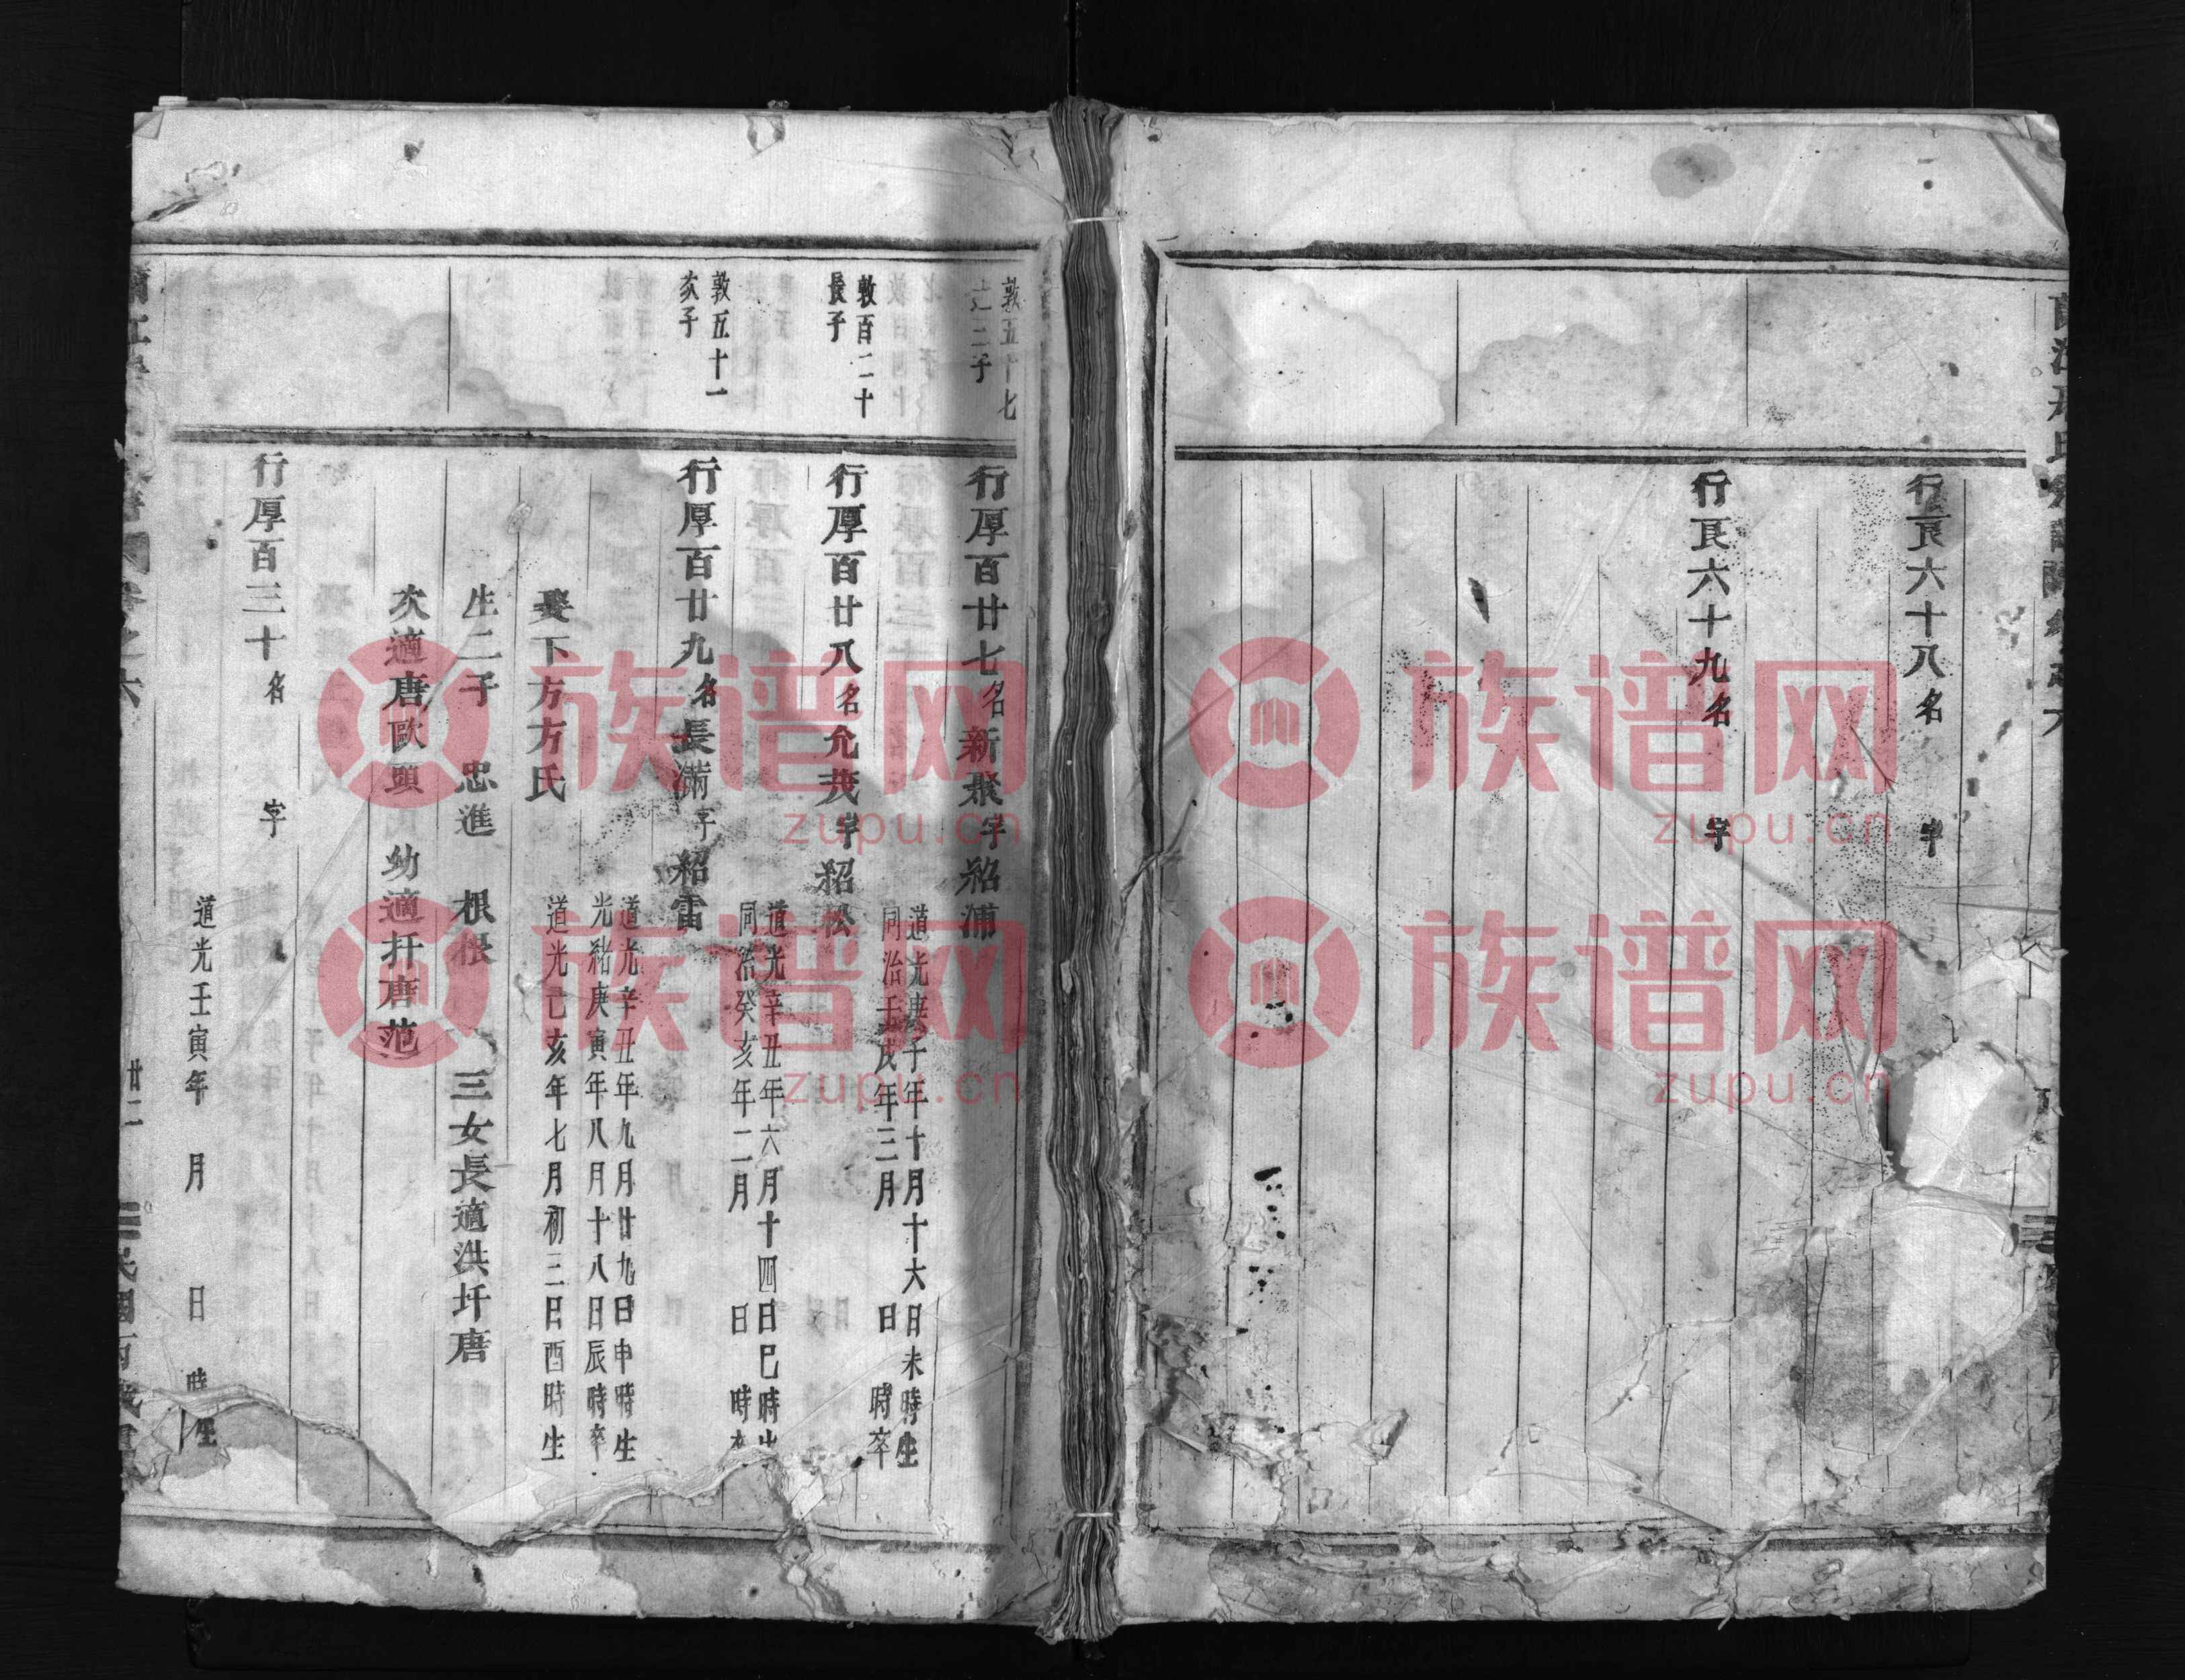 行良六十八名 字
行良六十九名 字
敦五十七
二子
行厚百廿七名新飛字紹浦
道光庚子年十月十六日未時生
同治壬戌年三月 日 時卒
敦百二十
長子
行厚百廿八名允茂字紹松
道光辛丑年六月十四日巳時
同治癸亥年二月 日 時
敦五十一
次子
行厚百廿九名長滿字紹雷
道光辛丑年九月廿九日申時生
光緒庚寅年八月十八日辰時卒
娶下方方氏
道光己亥年七月初三日酉時生
生二子 忠進 根根 三女長適洪圩唐
次適唐歐頭 幼適扦唐范
行厚百三十名 字
道光壬寅年 月 日 時生
廿二
族谱网
zupu.cn
族谱网
zupu.cn
族谱网
zupu.cn
族谱网
zupu.cn